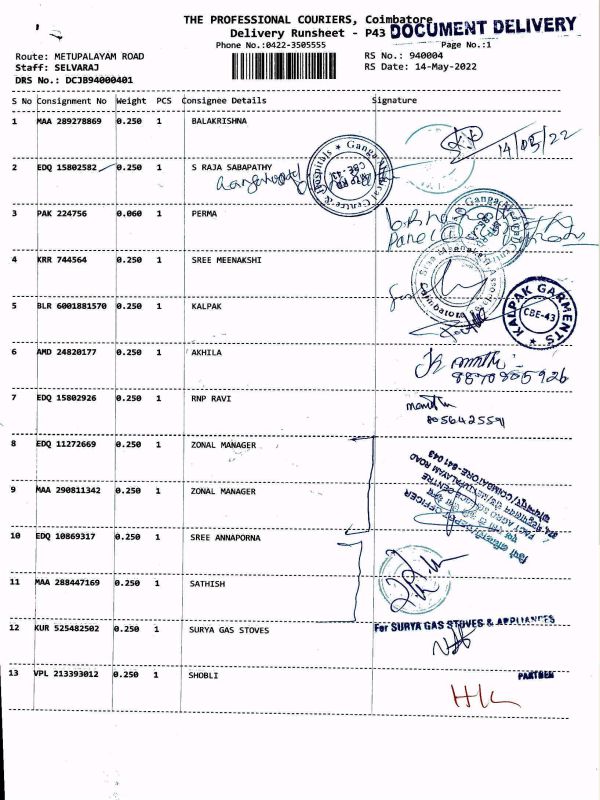 THE PROFESSIONAL COURIERS, Coimbatore
Delivery Runsheet - P43
DOCUMENT DELIVERY
Phone No.:0422-3505555
Page No.:1
Route: METUPALAYAM ROAD
RS No.: 940004
Staff: SELVARAJ
RS Date: 14-May-2022
DRS No.: DCJB94000401
S No Consignment No Weight PCS Consignee Details Signature
1 MAA 289278869 0.250 1 BALAKRISHNA
14/05/22
2 EDQ 15802582 0.250 1 S RAJA SABAPATHY
Ganga Medical Centre & Hospitals
CBE-43
3 PAK 224756 0.060 1 PERMA
4 KRR 744564 0.250 1 SREE MEENAKSHI
Coimbatore
5 BLR 6001881570 0.250 1 KALPAK
KALPAK GARMENTS
CBE-43
6 AMD 24820177 0.250 1 AKHILA
8870805926
7 EDQ 15802926 0.250 1 RNP RAVI
8056425591
8 EDQ 11272669 0.250 1 ZONAL MANAGER
9 MAA 290811342 0.250 1 ZONAL MANAGER
10 EDQ 10869317 0.250 1 SREE ANNAPORNA
11 MAA 288447169 0.250 1 SATHISH
12 KUR 525482502 0.250 1 SURYA GAS STOVES
For SURYA GAS STOVES & APPLIANCES
13 VPL 213393012 0.250 1 SHOBLI
PARTNER